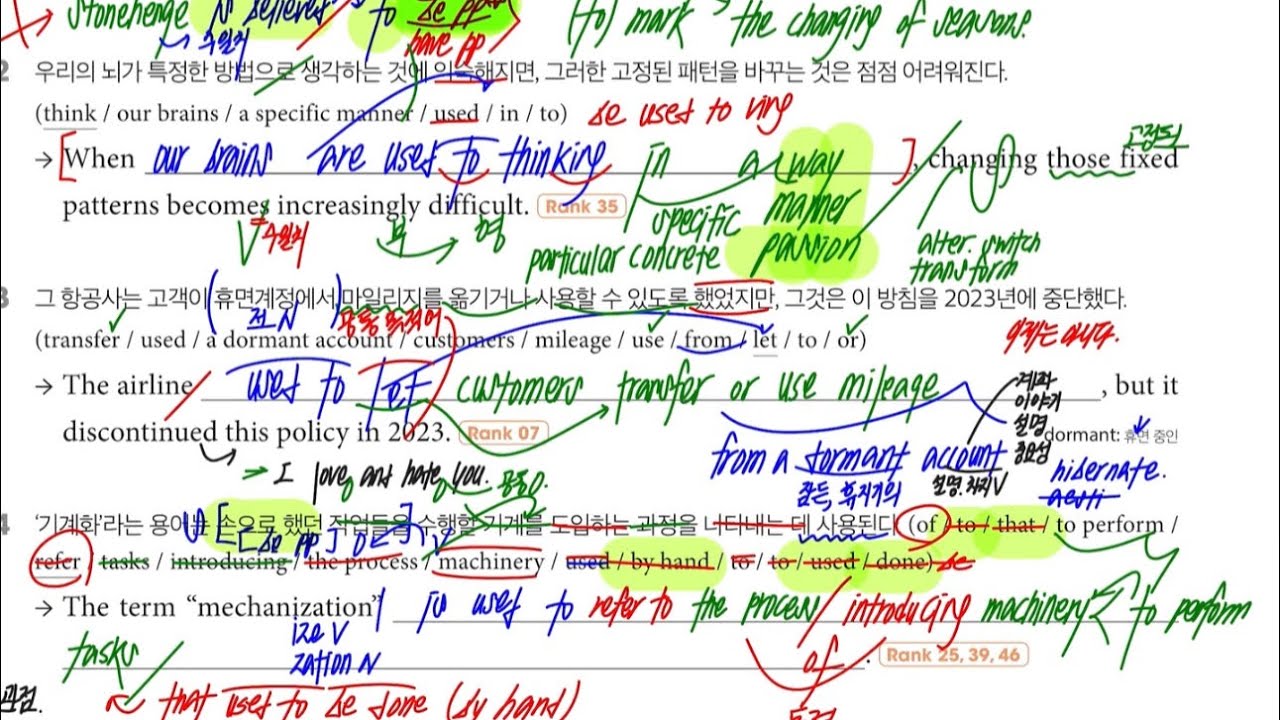 Stonehenge is believed to be pp have pp (to) mark the changing of seasons.
수일치
2 우리의 뇌가 특정한 방법으로 생각하는 것에 익숙해지면, 그러한 고정된 패턴을 바꾸는 것은 점점 어려워진다.
(think / our brains / a specific manner / used / in / to) be used to ving
고정된
→ [When our brains are used to thinking in a way], changing those fixed
patterns becomes increasingly difficult. Rank 35
specific manner
V 수일치 부 형
particular concrete passion
alter. switch
transform
3 그 항공사는 고객이 (휴면계정에서) 마일리지를 옮기거나 사용할 수 있도록 했었지만, 그것은 이 방침을 2023년에 중단했다.
전 N 공통 목적어
(transfer / used / a dormant account / customers / mileage / use / from / let / to / or)
이제는 아니다.
→ The airline used to let customers transfer or use mileage, but it
계좌
이야기
설명
중요성
discontinued this policy in 2023. Rank 07
dormant: 휴면 중인
from a dormant account
hibernate.
→ I love and hate you. 공통O.
설명. 차지V
4 '기계화'라는 용어는 손으로 했던 작업들을 수행할 기계를 도입하는 과정을 나타내는 데 사용된다 (of / to / that / to perform /
refer / tasks / introducing / the process / machinery / used / by hand / to / to / used / done) be
→ The term “mechanization” is used to refer to the process introducing machinery to perform
ize V
zation N
tasks of . Rank 25, 39, 46
that used to be done (by hand)
관점.